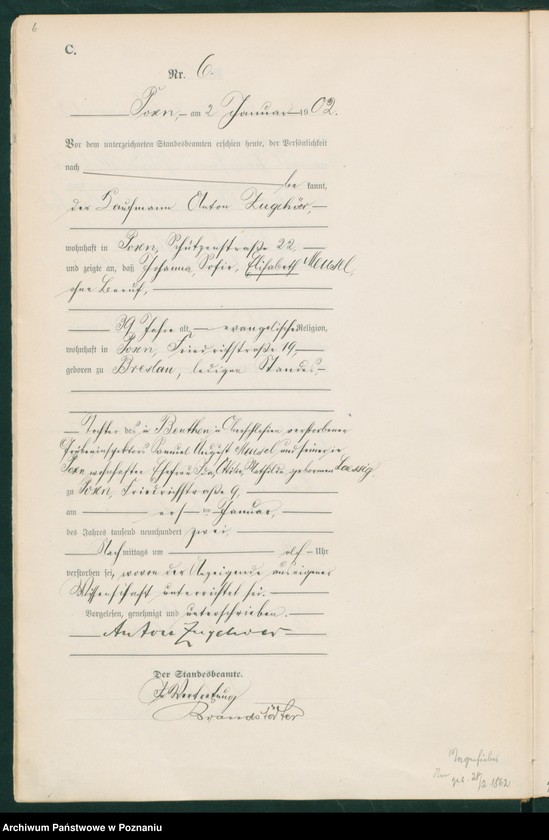 6
C.
Nr. 6.
Posen, am 2 Januar 1902.
Vor dem unterzeichneten Standesbeamten erschien heute, der Persönlichkeit
nach
be kannt,
der Kaufmann Anton Zugehör,
wohnhaft in Posen, Schützenstraße 22
und zeigte an, daß Johanna, Sofie, Elisabeth Meusel,
ohne Beruf,
39 Jahre alt, evangelischer Religion,
wohnhaft in Posen, Friedrichstraße 19,
geboren zu Breslau, ledigen Standes,
Tochter des in Beuthen in Oberschlesien verstorbenen
Güterinspektors Samuel August Meusel und seiner in
Posen wohnhaften Ehefrau Ida Ottilie Mathilde geborenen Lessig
zu Posen, Friedrichstraße 9,
am ersten Januar
des Jahres tausend neunhundert zwei,
Nachmittags um elf Uhr
verstorben sei, wovon der Anzeigende aus eigener
Wissenschaft unterrichtet sei.
Vorgelesen, genehmigt und unterschrieben.
Anton Zugehoer
Der Standesbeamte.
In Vertretung
Brandstädter
geb. 28/2 1862
Archiwum Państwowe w Poznaniu